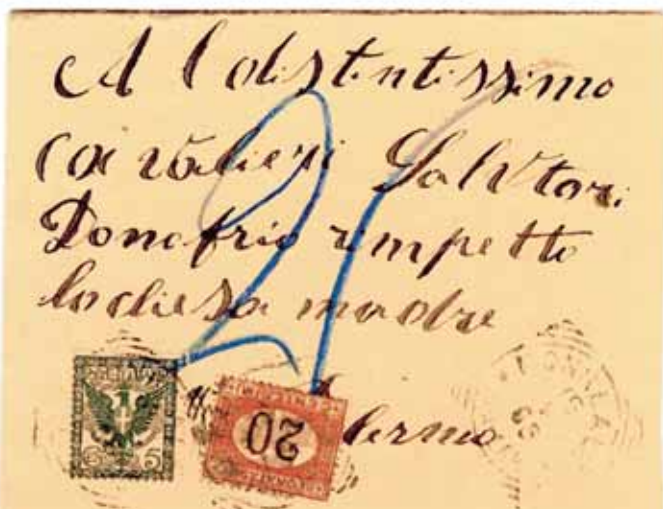 A l odistentissimo
cai valieri Salvtori
Donofrio rimpetto
lachiesa madre
21
5 5
20
lermo